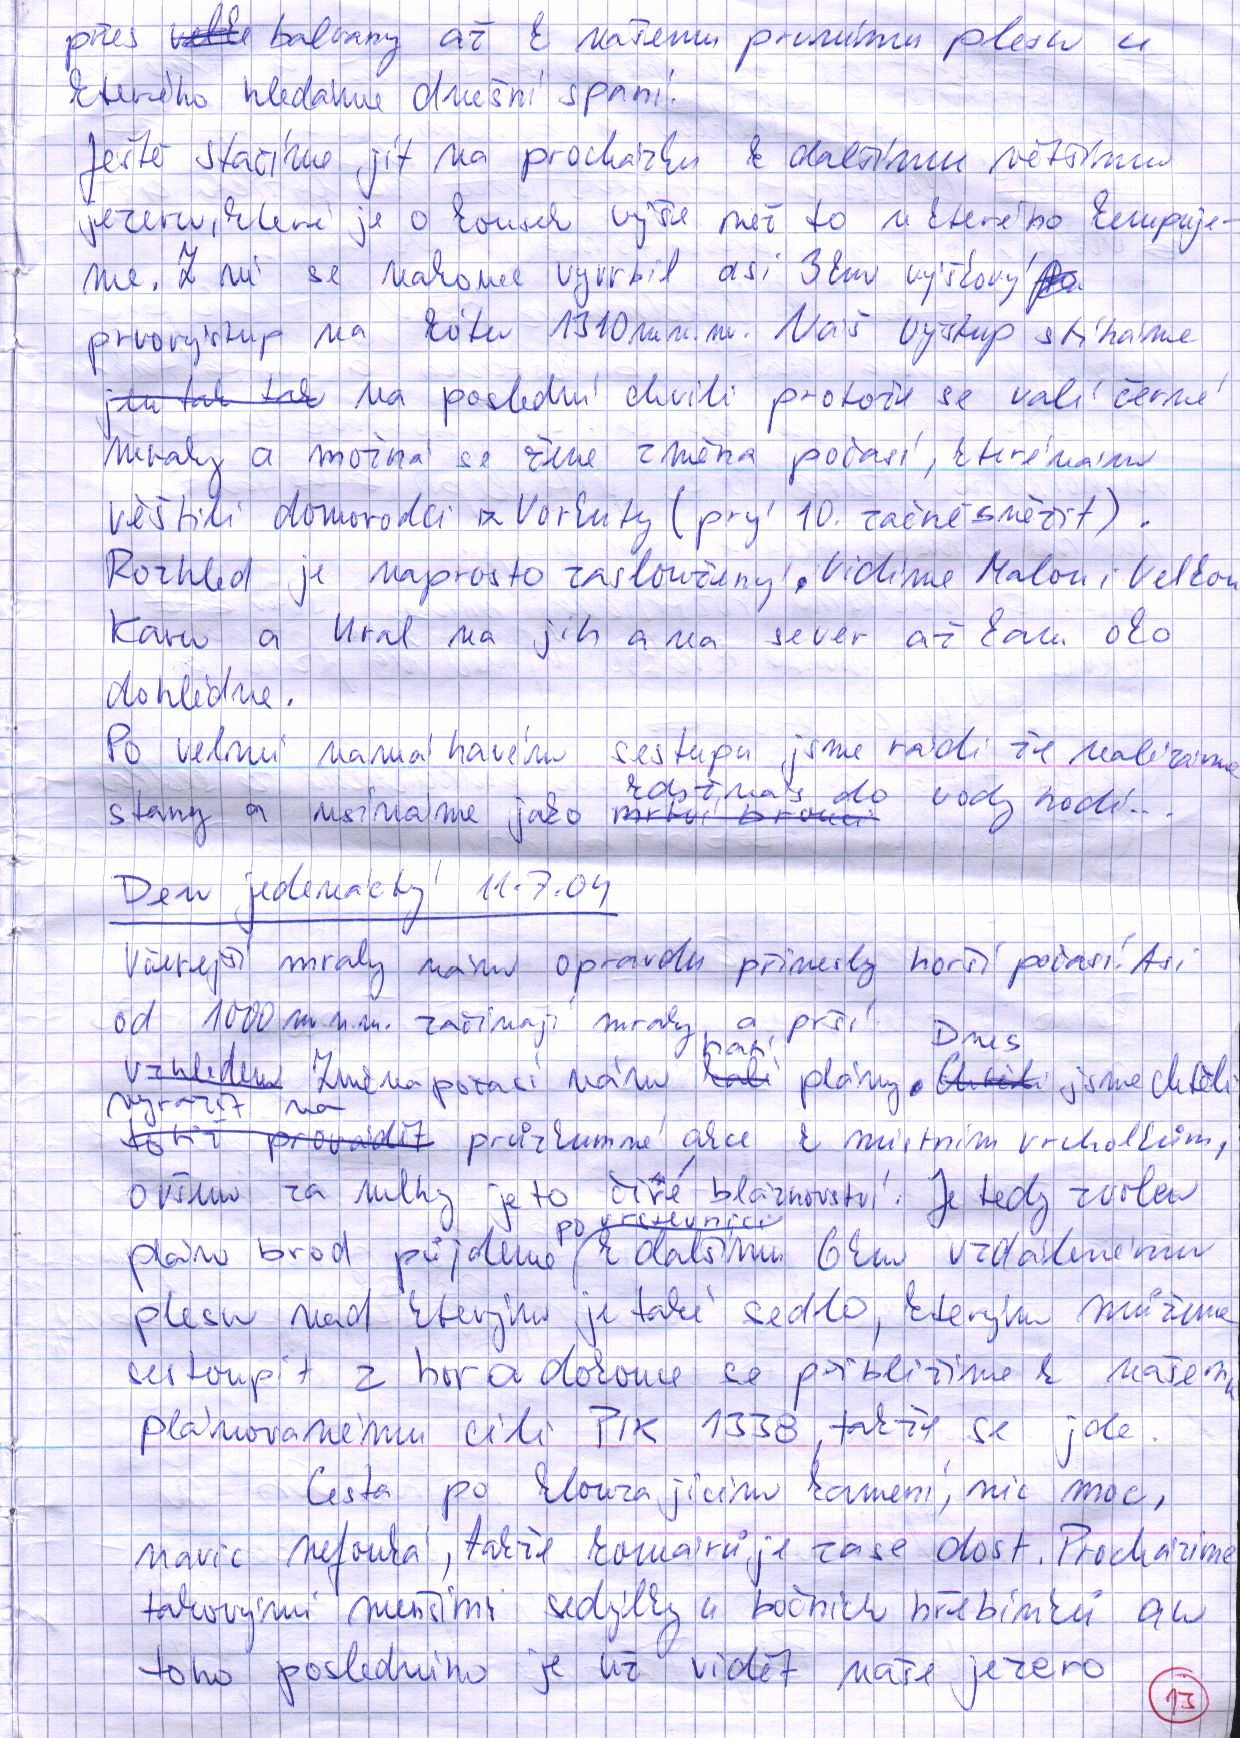 přes velké balvany až k našemu prvnímu plesu u
kterého hledáme dnešní spaní.
Ještě stačíme jít na procházku k dalšímu většímu
jezeru, které je o kousek výše než to u kterého kempuje-
me. Z ní se nakonec vyvrbil asi 3km výškový
prvovýstup na kótu 1310 m.n.m. Náš výstup stíháme
jen tak tak na poslední chvíli protože se valí černé
mraky a možná se žene změna počasí, které nám
věštili domorodci z Vorkuty (prý 10. začne sněžit).
Rozhled je naprosto zasloužený. Vidíme Malou i Velkou
Karu a Ural na jih a na sever až kam oko
dohlédne.
Po velmi namáhavém sestupu jsme rádi že nalézáme
když nás do
stany a usínáme jako mrtví brouci vody hodí...
Den jedenáctý 11.7.04
Včerejší mraky nám opravdu přinesly horší počasí. Asi
od 1000 m.n.m. začínají mraky a prší.
hatí Dnes
Vzhledem Změna počasí nám kalí plány. Chtěli jsme chtěli
vyrazit na
totiž provádět průzkumné akce k místním vrcholkům,
ovšem za mlhy je to čiré bláznovství. Je tedy zvolen
po vrstevnici
plán brod půjdeme k dalšímu 6km vzdálenému
plesu nad kterým je také sedlo, kterým můžeme
sestoupit z hor a dokonce se přiblížíme k našemu
plánovanému cíli PIK 1338, takže se jde.
Cesta po klouzajícím kamení, nic moc,
navíc nefouká, takže komárů je zase dost. Procházíme
takovými menšími sedýlky u bočních hřebínků a u
toho posledního je už vidět naše jezero
13